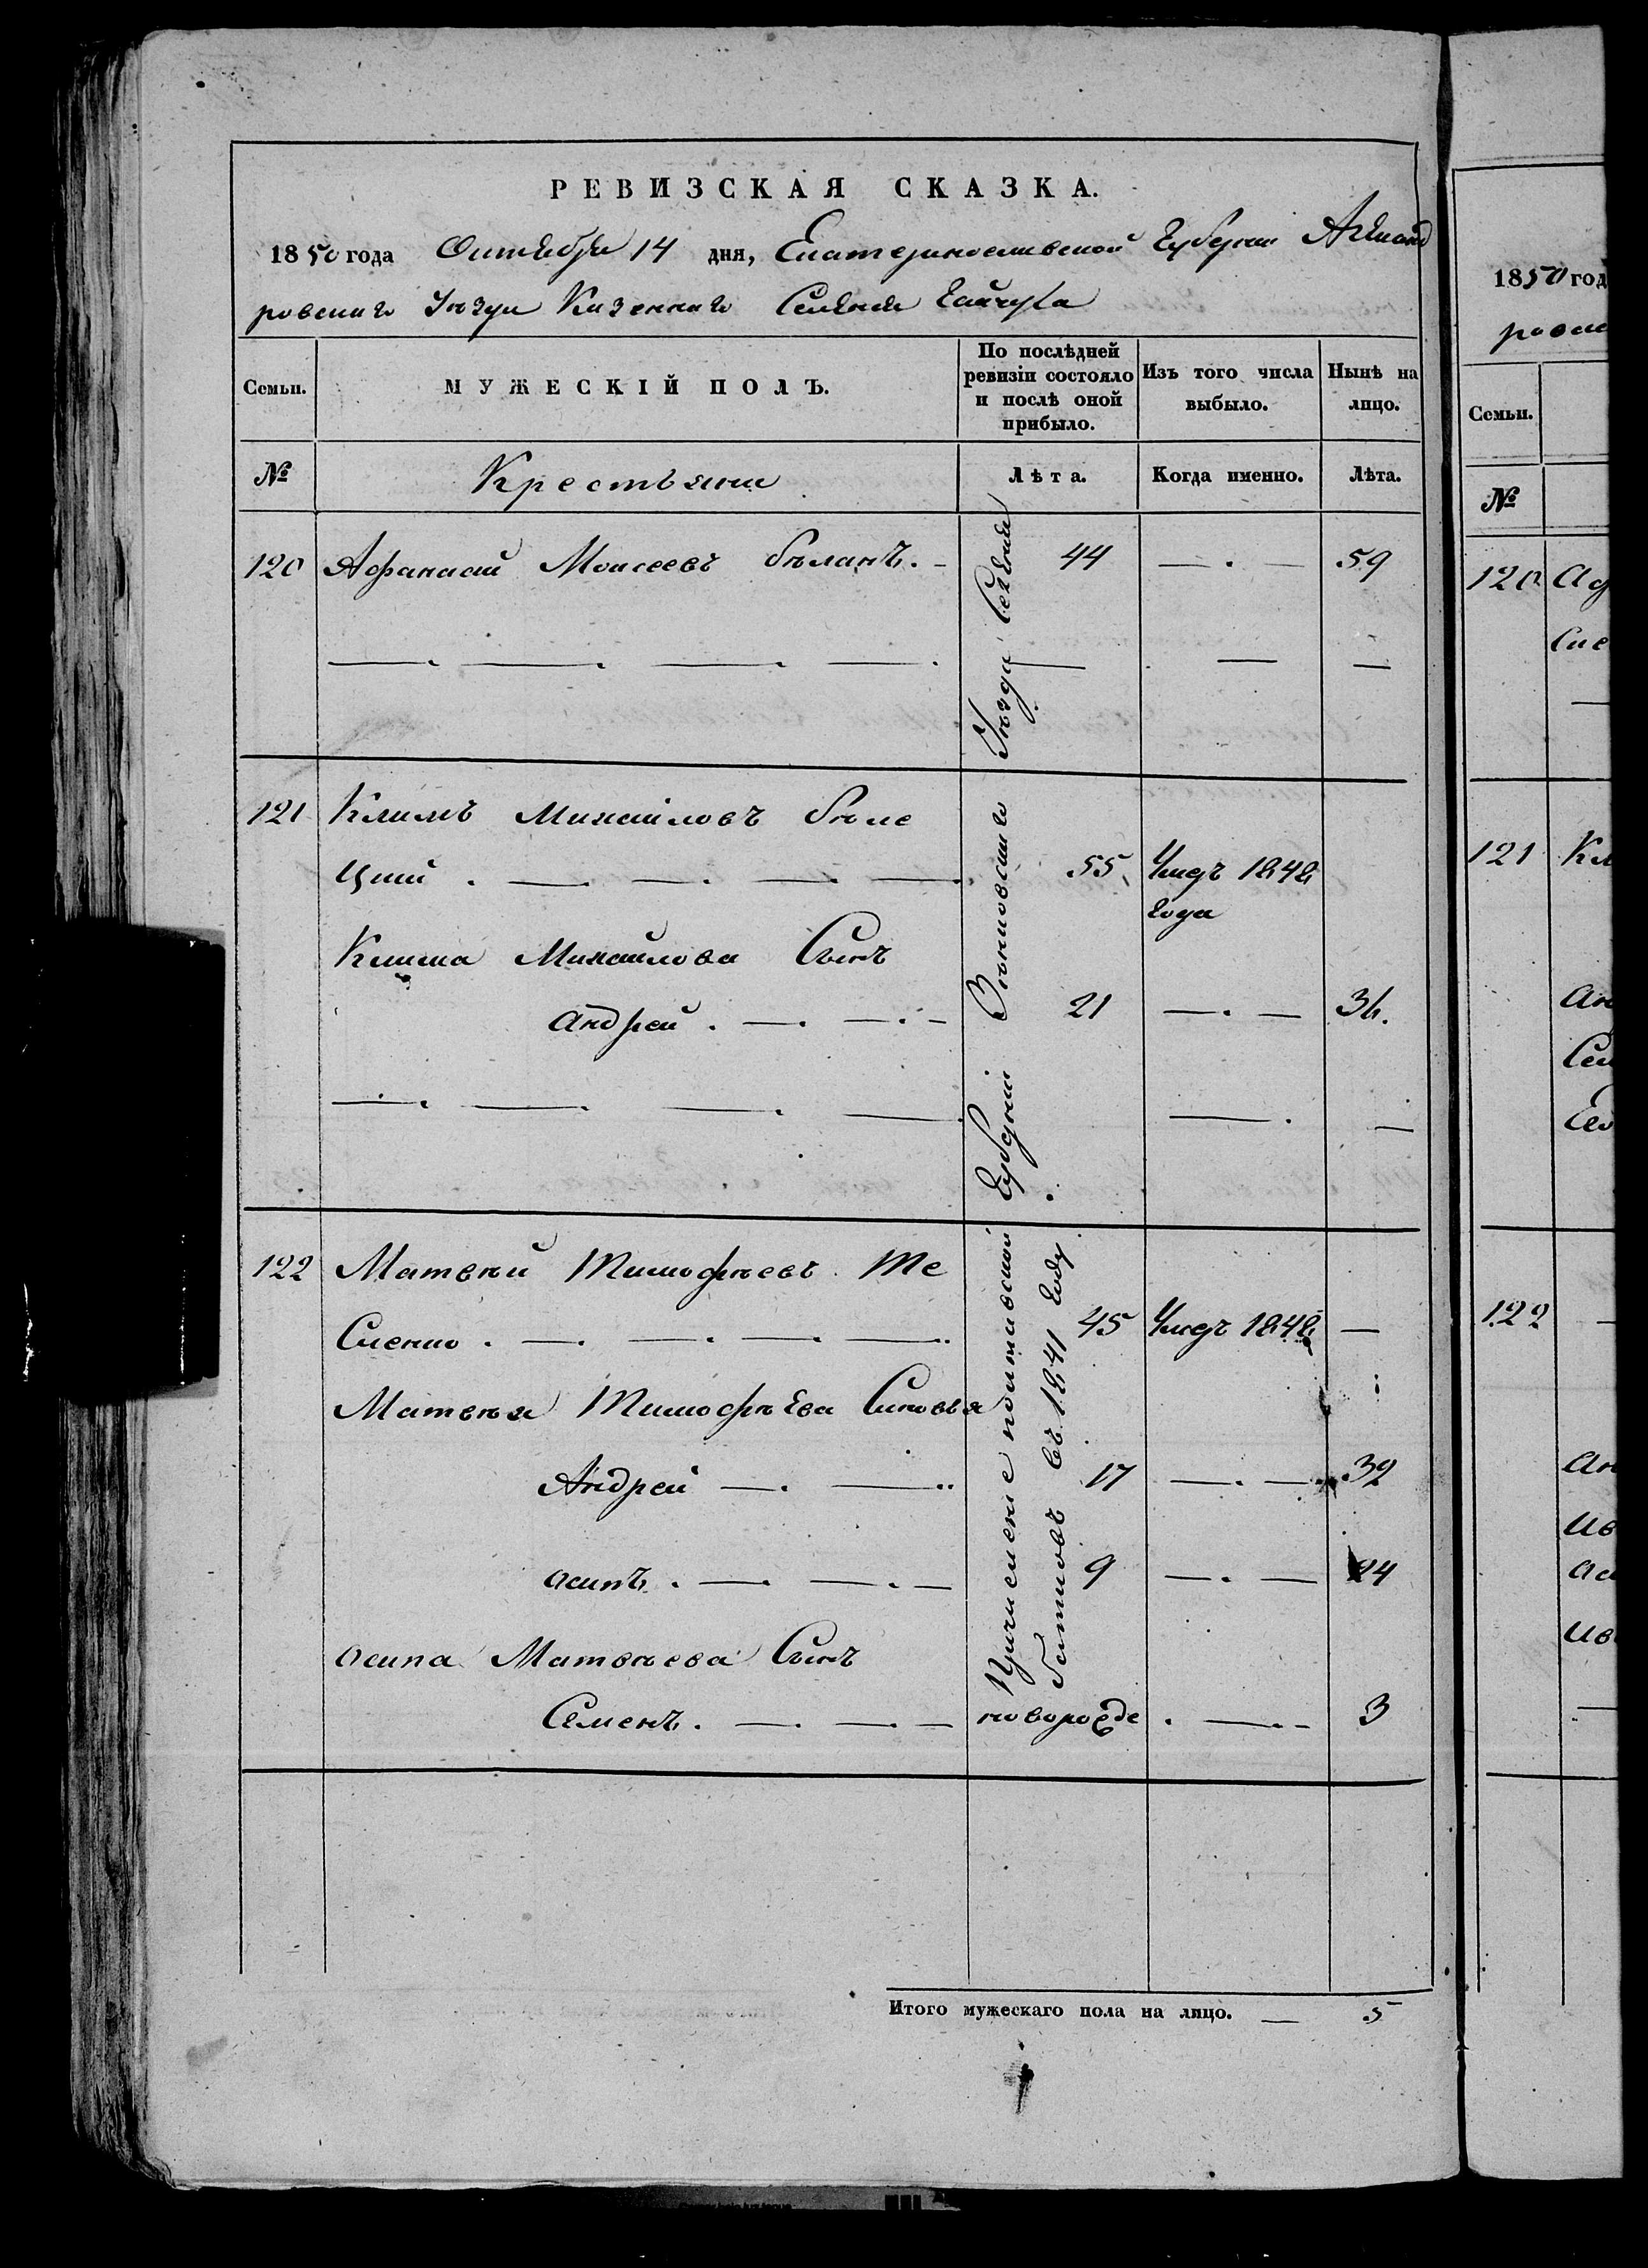 РЕВИЗСКАЯ СКАЗКА.
1850 года Октября 14 дня, Екатеринославской Губернии Александ
ровскаго Уезда Казеннаго Селения Гайчула
Семьи. МУЖЕСКІЙ ПОЛЪ. По послѣдней ревизіи состояло и послѣ оной прибыло. Изъ того числа выбыло. Нынѣ на лицо.
№ Крестьяни Лѣта. Когда именно. Лѣта.
120 Афанасий Моисеевъ Бѣланъ. 44 59
121 Климъ Михайловъ Бѣле
цкий. 55 Умеръ 1848
года
Клима Михайлова Сынъ
Андрей. 21 36.
122 Матвѣй Тимофѣевъ Те
Сленко. 45 Умеръ 1848
Матвѣя Тимофѣева Сыновья
Андрей 17 32
Осипъ. 9 24
Осипа Матвѣева Сынъ
Семенъ. новорожде 3
Причислены полтавской Губернии Зѣньковскаго Уѣзда Селения
Батковъ въ 1841 году.
Итого мужескаго пола на лицо. 5
1850 год
ровск
Семьи.
№
120 Аф
121 Кл
Ан
122
Ан
Ив
Ив